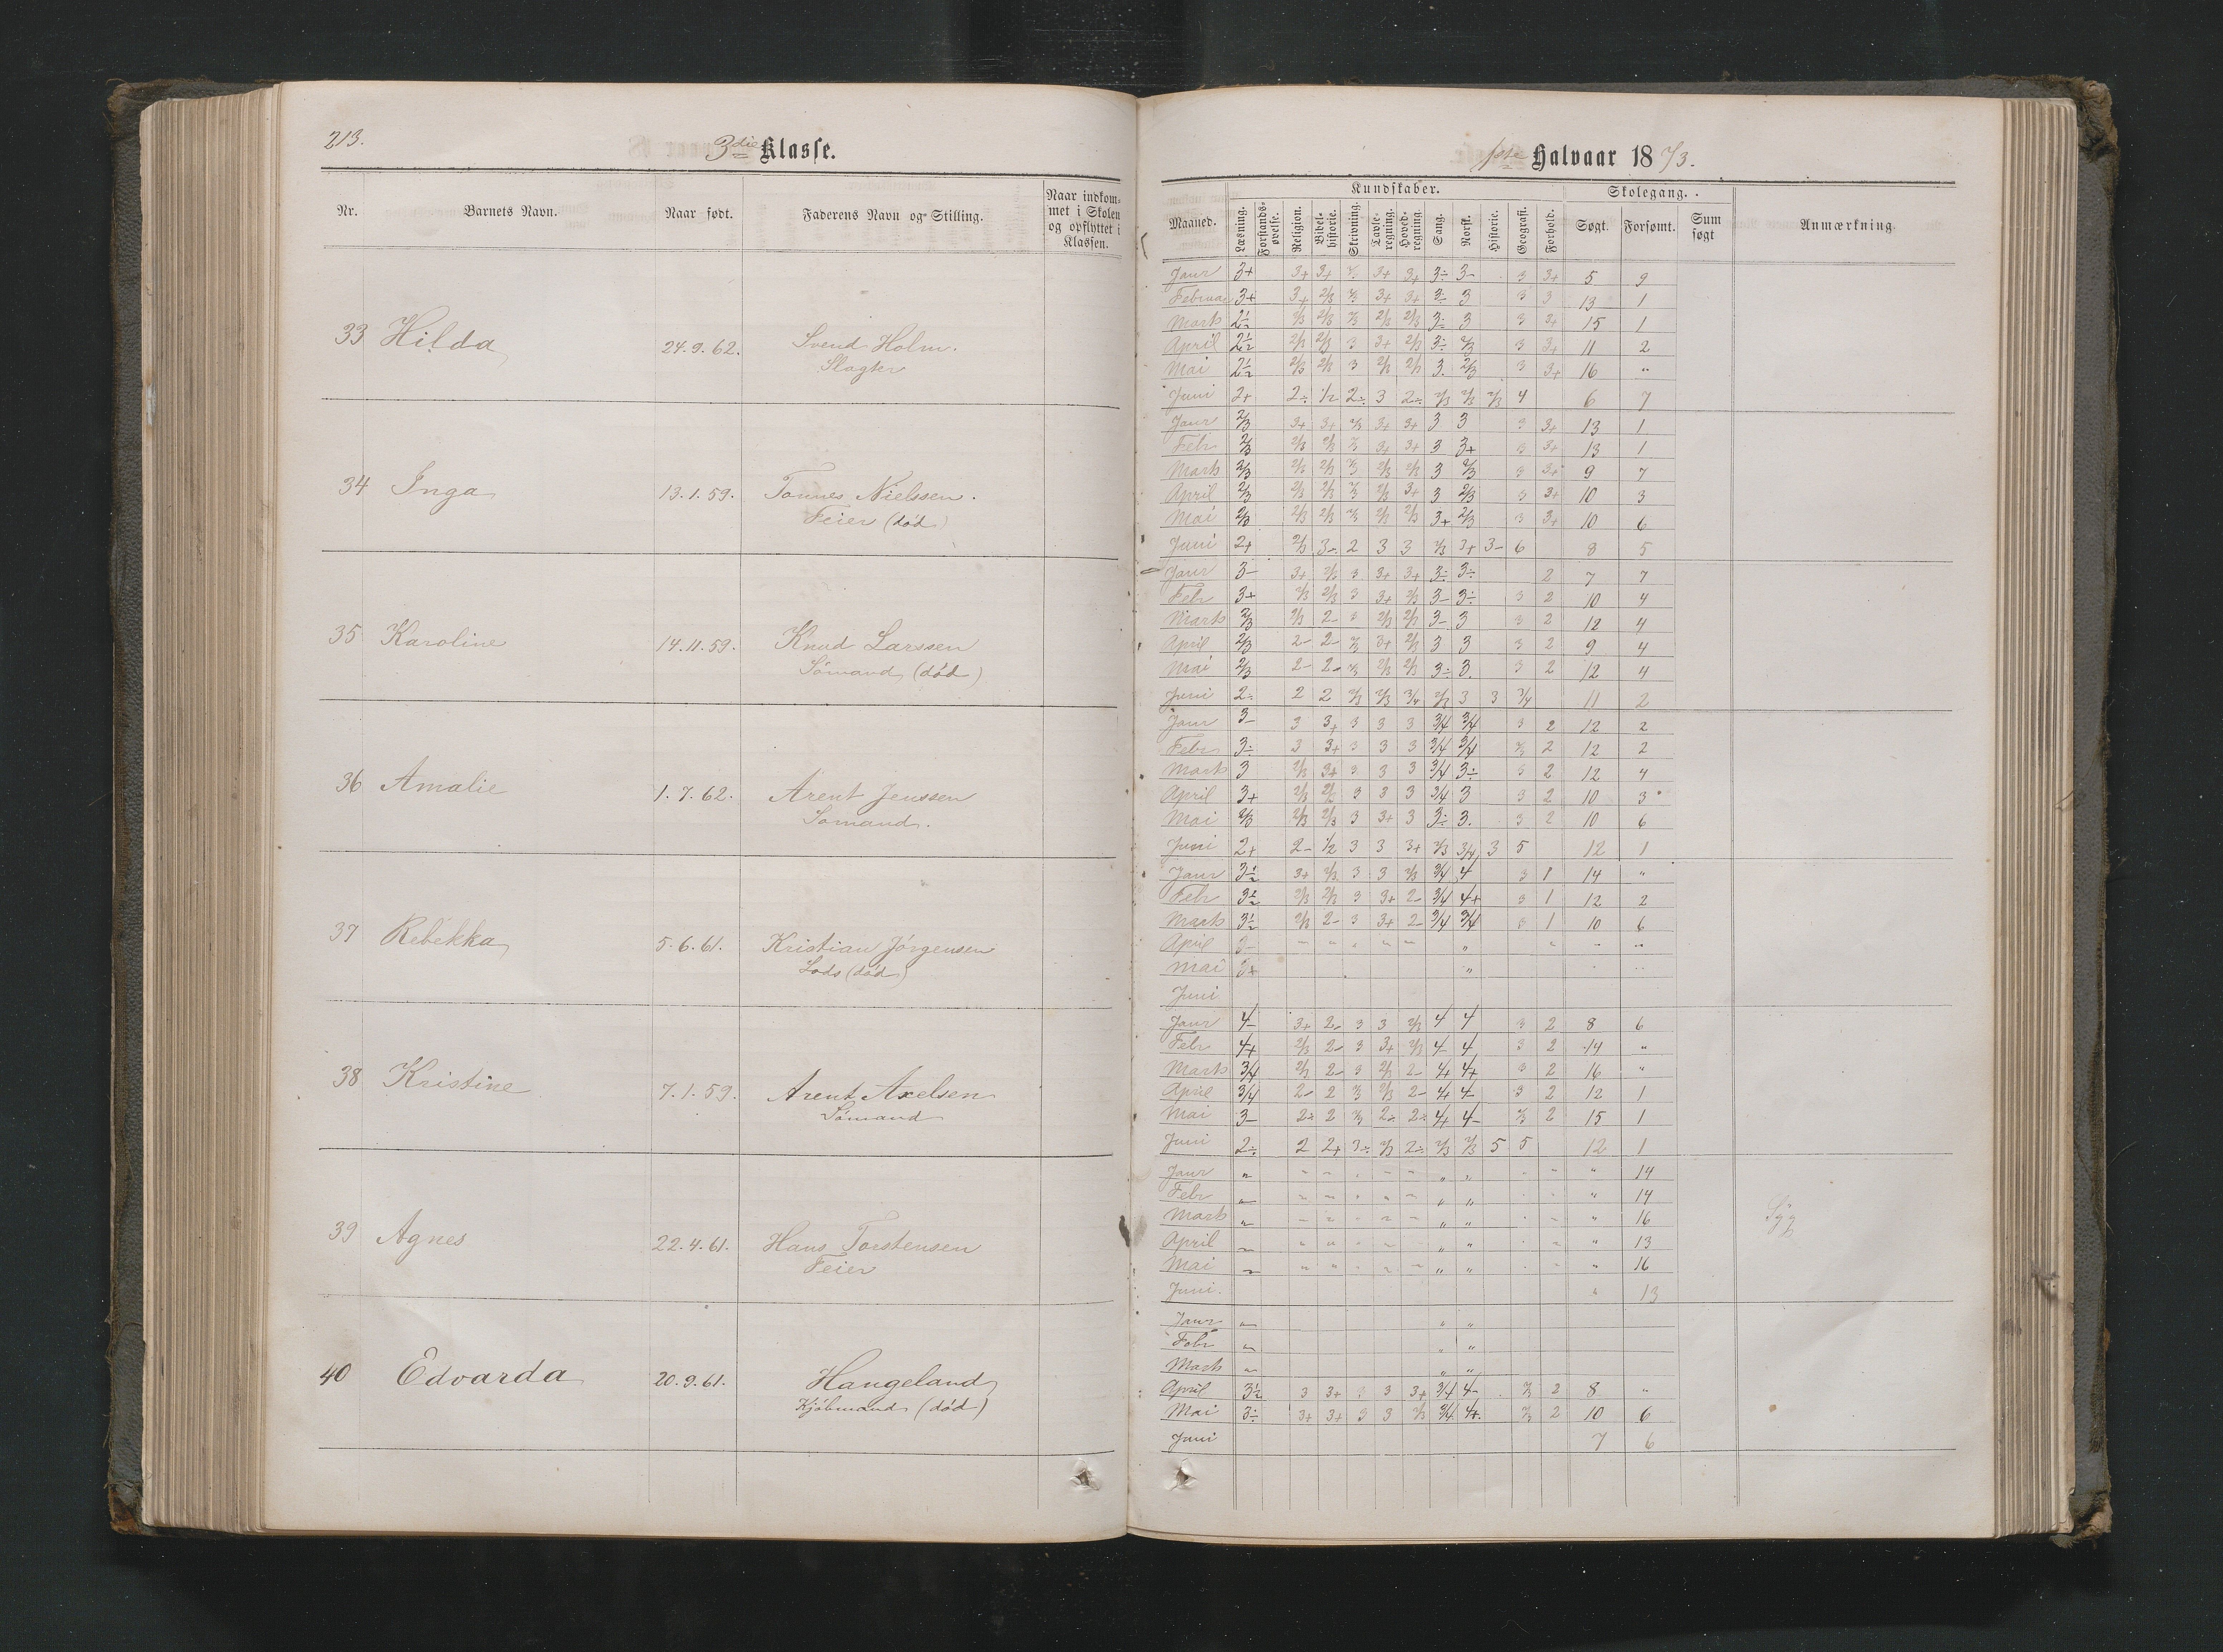 213.
3die Klasse.
Nr. Barnets Navn. Naar født. Faderens Navn og Stilling. Naar indkommet i Skolen og opflyttet i Klassen.
33 Hilda 24.9.62. Svend Holm.
Slagter
34 Inga 13.1.59. Tønnes Nielssen.
Feier (død)
35 Karoline 14.11.59. Knud Larssen
Sømand (død)
36 Amalie 1.7.62. Arent Jenssen
Sømand.
37 Rebekka 5.6.61. Kristian Jørgensen
Lods (død)
38 Kristine 7.1.59. Arent Axelsen
Sömand
39 Agnes 22.4.61. Hans Torstensen
Feier
40 Edvarda 20.9.61. Haugeland
Kjöbmand (död)
1ste Halvaar 1873.
Kundskaber. Skolegang.
Maaned. Læsning. Forstandsøvelse. Religion. Bibelhistorie. Skrivning. Tavleregning. Hovedregning. Sang. Norsk. Historie. Geografi. Forhold. Søgt. Forsømt. Sum søgt Anmærkning.
Janr 3+ 3+ 3+ 3+ 3+ 3÷ 3- 3 3+ 5 9
Februar 3+ 3+ 2/3 3+ 3+ 3÷ 3 3 3 13 1
Marts 2½ 2/3 2/3 2/3 2/3 2/3 3÷ 3 3 3+ 15 1
April 2½ 2/3 2/3 3 3+ 2/3 3÷ 2/3 3 3+ 11 2
Mai 2½ 2/3 2/3 3 2/3 2/3 3. 2/3 3 3+ 16 "
Juni 2+ 2÷ 1/2 2÷ 3 2÷ 2/3 2/3 2/3 4 6 7
Janr 2/3 3+ 3+ 2/3 3+ 3+ 3 3 3 3+ 13 1
Febr 2/3 2/3 2/3 2/3 3+ 3+ 3 3+ 3 3+ 13 1
Marts 2/3 2/3 2/3 2/3 2/3 2/3 3 2/3 3 3+ 9 7
April 2/3 2/3 2/3 2/3 2/3 3+ 3 2/3 3 3+ 10 3
Mai 2/3 2/3 2/3 2/3 2/3 2/3 3+ 2/3 3 3+ 10 6
Juni 2+ 2/3 3÷ 2 3 3 2/3 3+ 3- 6 8 5
Janr 3- 3+ 2/3 3 3+ 3+ 3÷ 3÷ 2 7 7
Febr 3+ 2/3 2/3 3 3+ 2/3 3- 3÷ 3 2 10 4
Marts 2/3 2/3 2- 3 2/3 2/3 3- 3 3 2 12 4
April 2/3 2- 2- 2/3 3+ 2/3 3 3 3 2 9 4
Mai 2/3 2- 2- 2/3 2/3 2/3 3÷ 3. 3 2 12 4
Juni 2÷ 2 2 2/3 2/3 3/4 2/3 3 3 3/4 11 2
Janr 3- 3 3+ 3 3 3 3/4 3/4 3 2 12 2
Febr 3÷ 3 3+ 3 3 3 3/4 3/4 2/3 2 12 2
Marts 3 2/3 3+ 3 3 3 3/4 3÷ 3 2 12 4
April 3+ 2/3 2/3 3 3 3 3/4 3 3 2 10 3
Mai 2/3 2/3 2/3 3 3+ 3 3÷ 3. 3 2 10 6
Juni 2+ 2- 1/2 3 3 3+ 2/3 3/4 3 5 12 1
Janr 3½ 3+ 2/3 3 3 2/3 3/4 4 3 1 14 "
Febr 3½ 2/3 2/3 3 3+ 2- 3/4 4+ 3 1 12 2
Marts 3½ 2/3 2- 3 3+ 2- 3/4 3/4 3 1 10 6
April 3- " " " " " " " " "
Mai 3+ " " "
Juni
Janr 4- 3+ 2- 3 3 2/3 4 4 3 2 8 6
Febr 4+ 2/3 2- 3 3+ 2/3 4- 4 3 2 14 "
Marts 3/4 2/3 2- 3 2/3 2- 4+ 4+ 3 2 16 "
April 3/4 2- 2 2/3 2/3 2- 4+ 4- 3 2 12 1
Mai 3- 2÷ 2 2/3 2÷ 2÷ 4+ 4- 2/3 2 15 1
Juni 2÷ 2 2+ 3÷ 2/3 2÷ 2/3 2/3 5 5 12 1
Janr " " " " " " " " " " " 14
Febr " " " " " " " " " " " 14
Marts " " " " " " " " " " " 16 Syg
April " " " " " " " " " " " 13
Mai " " " " " " " " " " " 16
Juni. " 13
Janr " " "
Febr " " "
Marts " " "
April 3½ 3 3+ 3 3 3+ 3/4 4- 2/3 2 8 "
Mai 3÷ 3+ 3+ 3 3 2/3 3/4 4+. 2/3 2 10 6
Juni 7 6